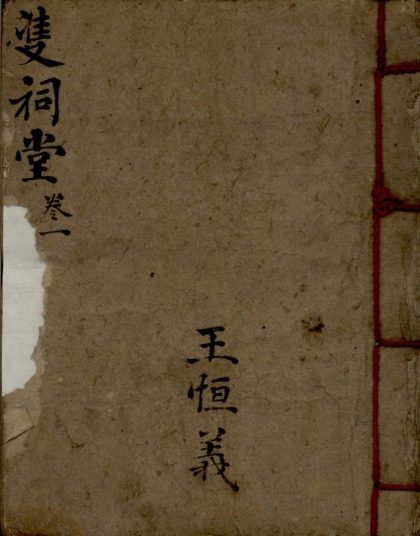 雙祠堂卷一
王恒義